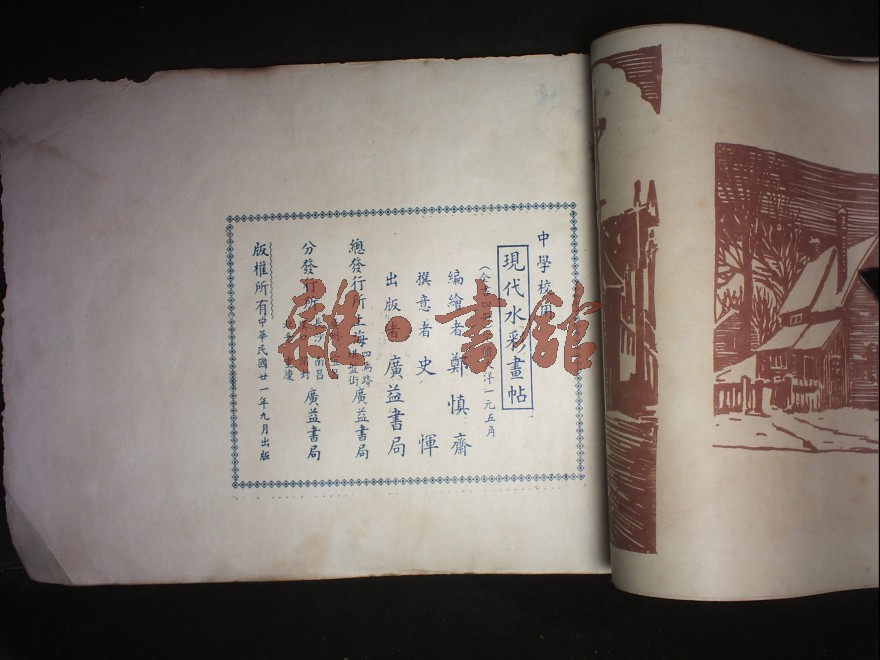 中學校用
現代水彩畫帖
大洋一元五角
編繪者 鄭慎齋
撰意者 史惲
出版者 廣益書局
總發行所 上海 四馬路 廣益書局
分發行所 長沙 南昌 重慶 廣益書局
版權所有 中華民國廿一年九月出版
雜·書館